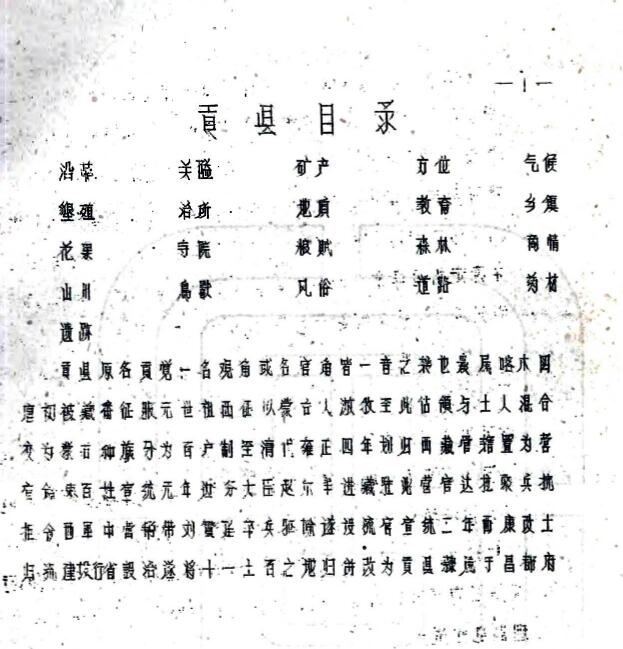 —1—
贡县目录
沿革 关隘 矿产 方位 气候
垦殖 治所 地质 教育 乡镇
花果 寺院 粮赋 森林 商情
山川 鸟兽 风俗 道路 药材
遗跡
贡县原名贡觉一名观角或名官角皆一音之 也 属喀木四
唐初被藏番征服元世祖西征以蒙古人游牧至此估领与土人混合
变为蒙古种族分为百户制至清代雍正四年划归西藏管辖置为营
官 束百姓宣统元年 大臣赵尔丰进藏 营官达 聚兵抗
拒令西军中营 带刘 率兵驱除遂设流官宣统二年 康改土
归流建投行省设治遂将十一土百之地归 改为贡县隶 于昌都府